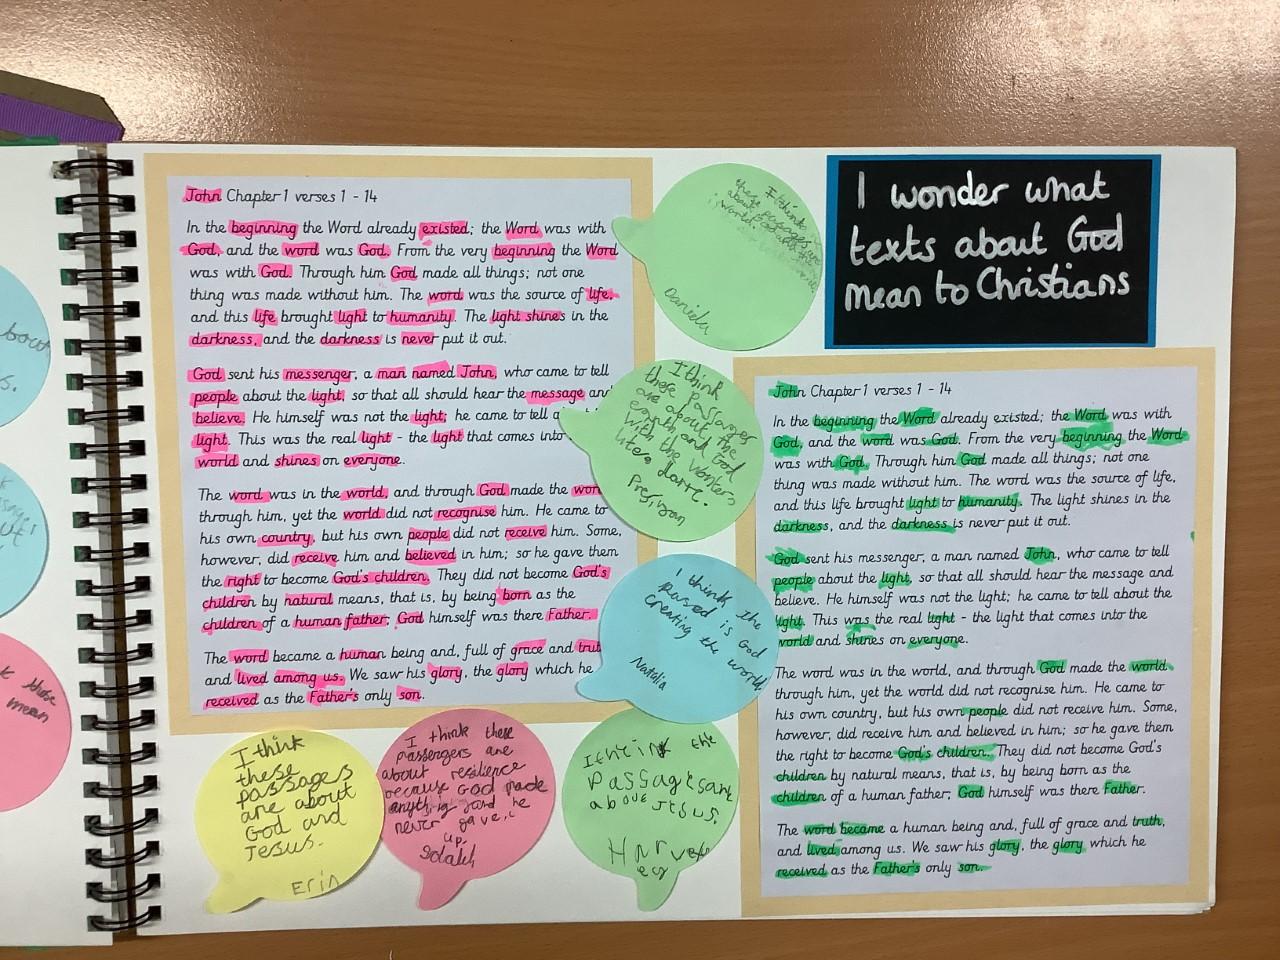 John Chapter 1 verses 1 - 14
In the beginning the Word already existed; the Word was with
God, and the word was God. From the very beginning the Word
was with God. Through him God made all things; not one
thing was made without him. The word was the source of life,
and this life brought light to humanity. The light shines in the
darkness, and the darkness is never put it out.
God sent his messenger, a man named John, who came to tell
people about the light, so that all should hear the message and
believe. He himself was not the light; he came to tell a
light. This was the real light - the light that comes into
world and shines on everyone.
The word was in the world, and through God made the wor
through him, yet the world did not recognise him. He came to
his own country, but his own people did not receive him. Some,
however, did receive him and believed in him; so he gave them
the right to become God's children. They did not become God's
children by natural means, that is, by being born as the
children of a human father; God himself was there Father.
The word became a human being and, full of grace and trut
and lived among us. We saw his glory, the glory which he
received as the Father's only son.
I think
these passages are
about God with the
world.
Daniela
I think
these passanger
are about the
earth and God
with the workers
Presiyan
I think the
passed is God
creating the world.
Natalia
I think
these
passages
are about
God and
Jesus.
Erin
I think these
passangers are
about resilience
because God made
anything and he
never gave
up.
the
passage are
about Jesus.
I wonder what
texts about God
mean to Christians
John Chapter 1 verses 1 - 14
In the beginning the Word already existed; the Word was with
God, and the word was God. From the very beginning the Word
was with God. Through him God made all things; not one
thing was made without him. The word was the source of life,
and this life brought light to humanity. The light shines in the
darkness, and the darkness is never put it out.
God sent his messenger, a man named John, who came to tell
people about the light, so that all should hear the message and
believe. He himself was not the light; he came to tell about the
light. This was the real light - the light that comes into the
world and shines on everyone.
The word was in the world, and through God made the world
through him, yet the world did not recognise him. He came to
his own country, but his own people did not receive him. Some,
however, did receive him and believed in him; so he gave them
the right to become God's children. They did not become God's
children by natural means, that is, by being born as the
children of a human father; God himself was there Father.
The word became a human being and, full of grace and truth,
and lived among us. We saw his glory, the glory which he
received as the Father's only son.